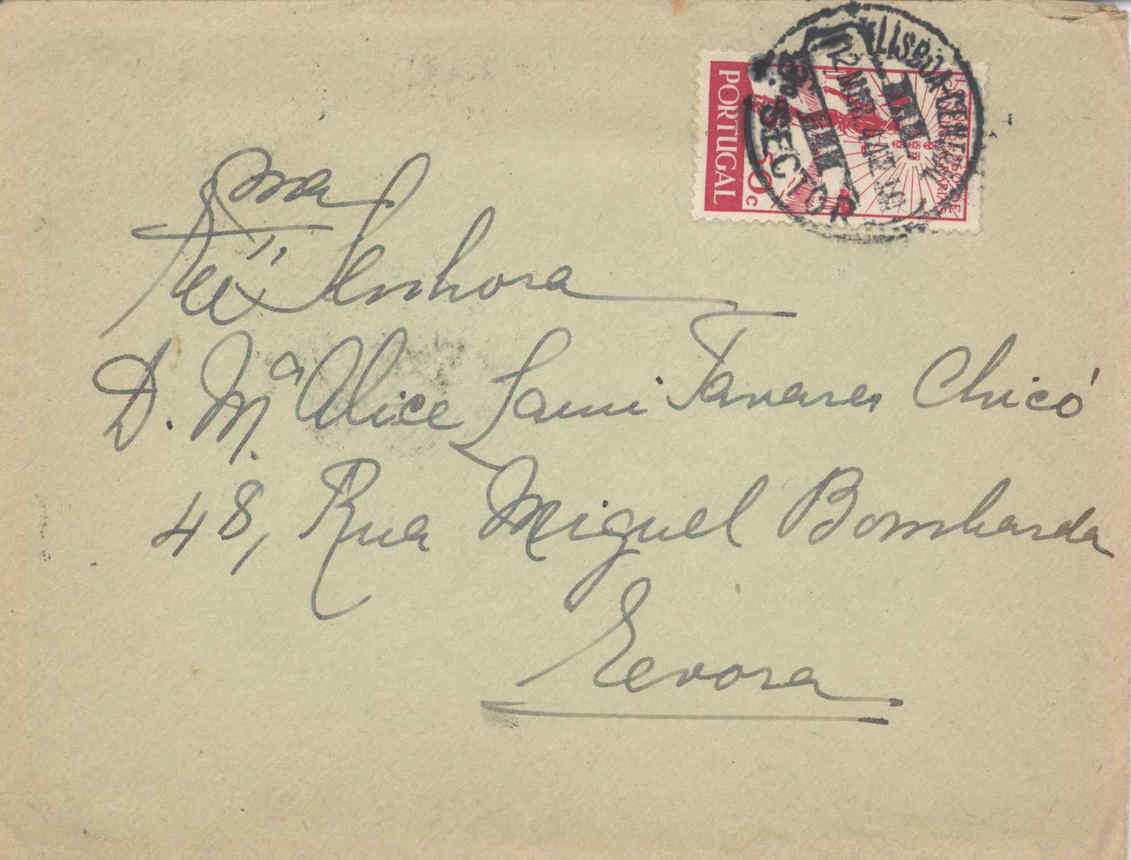 PORTUGAL
50 c
LISBOA CENTRAL
12 MAR
SECTOR
Exª Senhora
D. Mª Alice Lami Tavares Chicó
48, Rua Miguel Bombarda
Evora